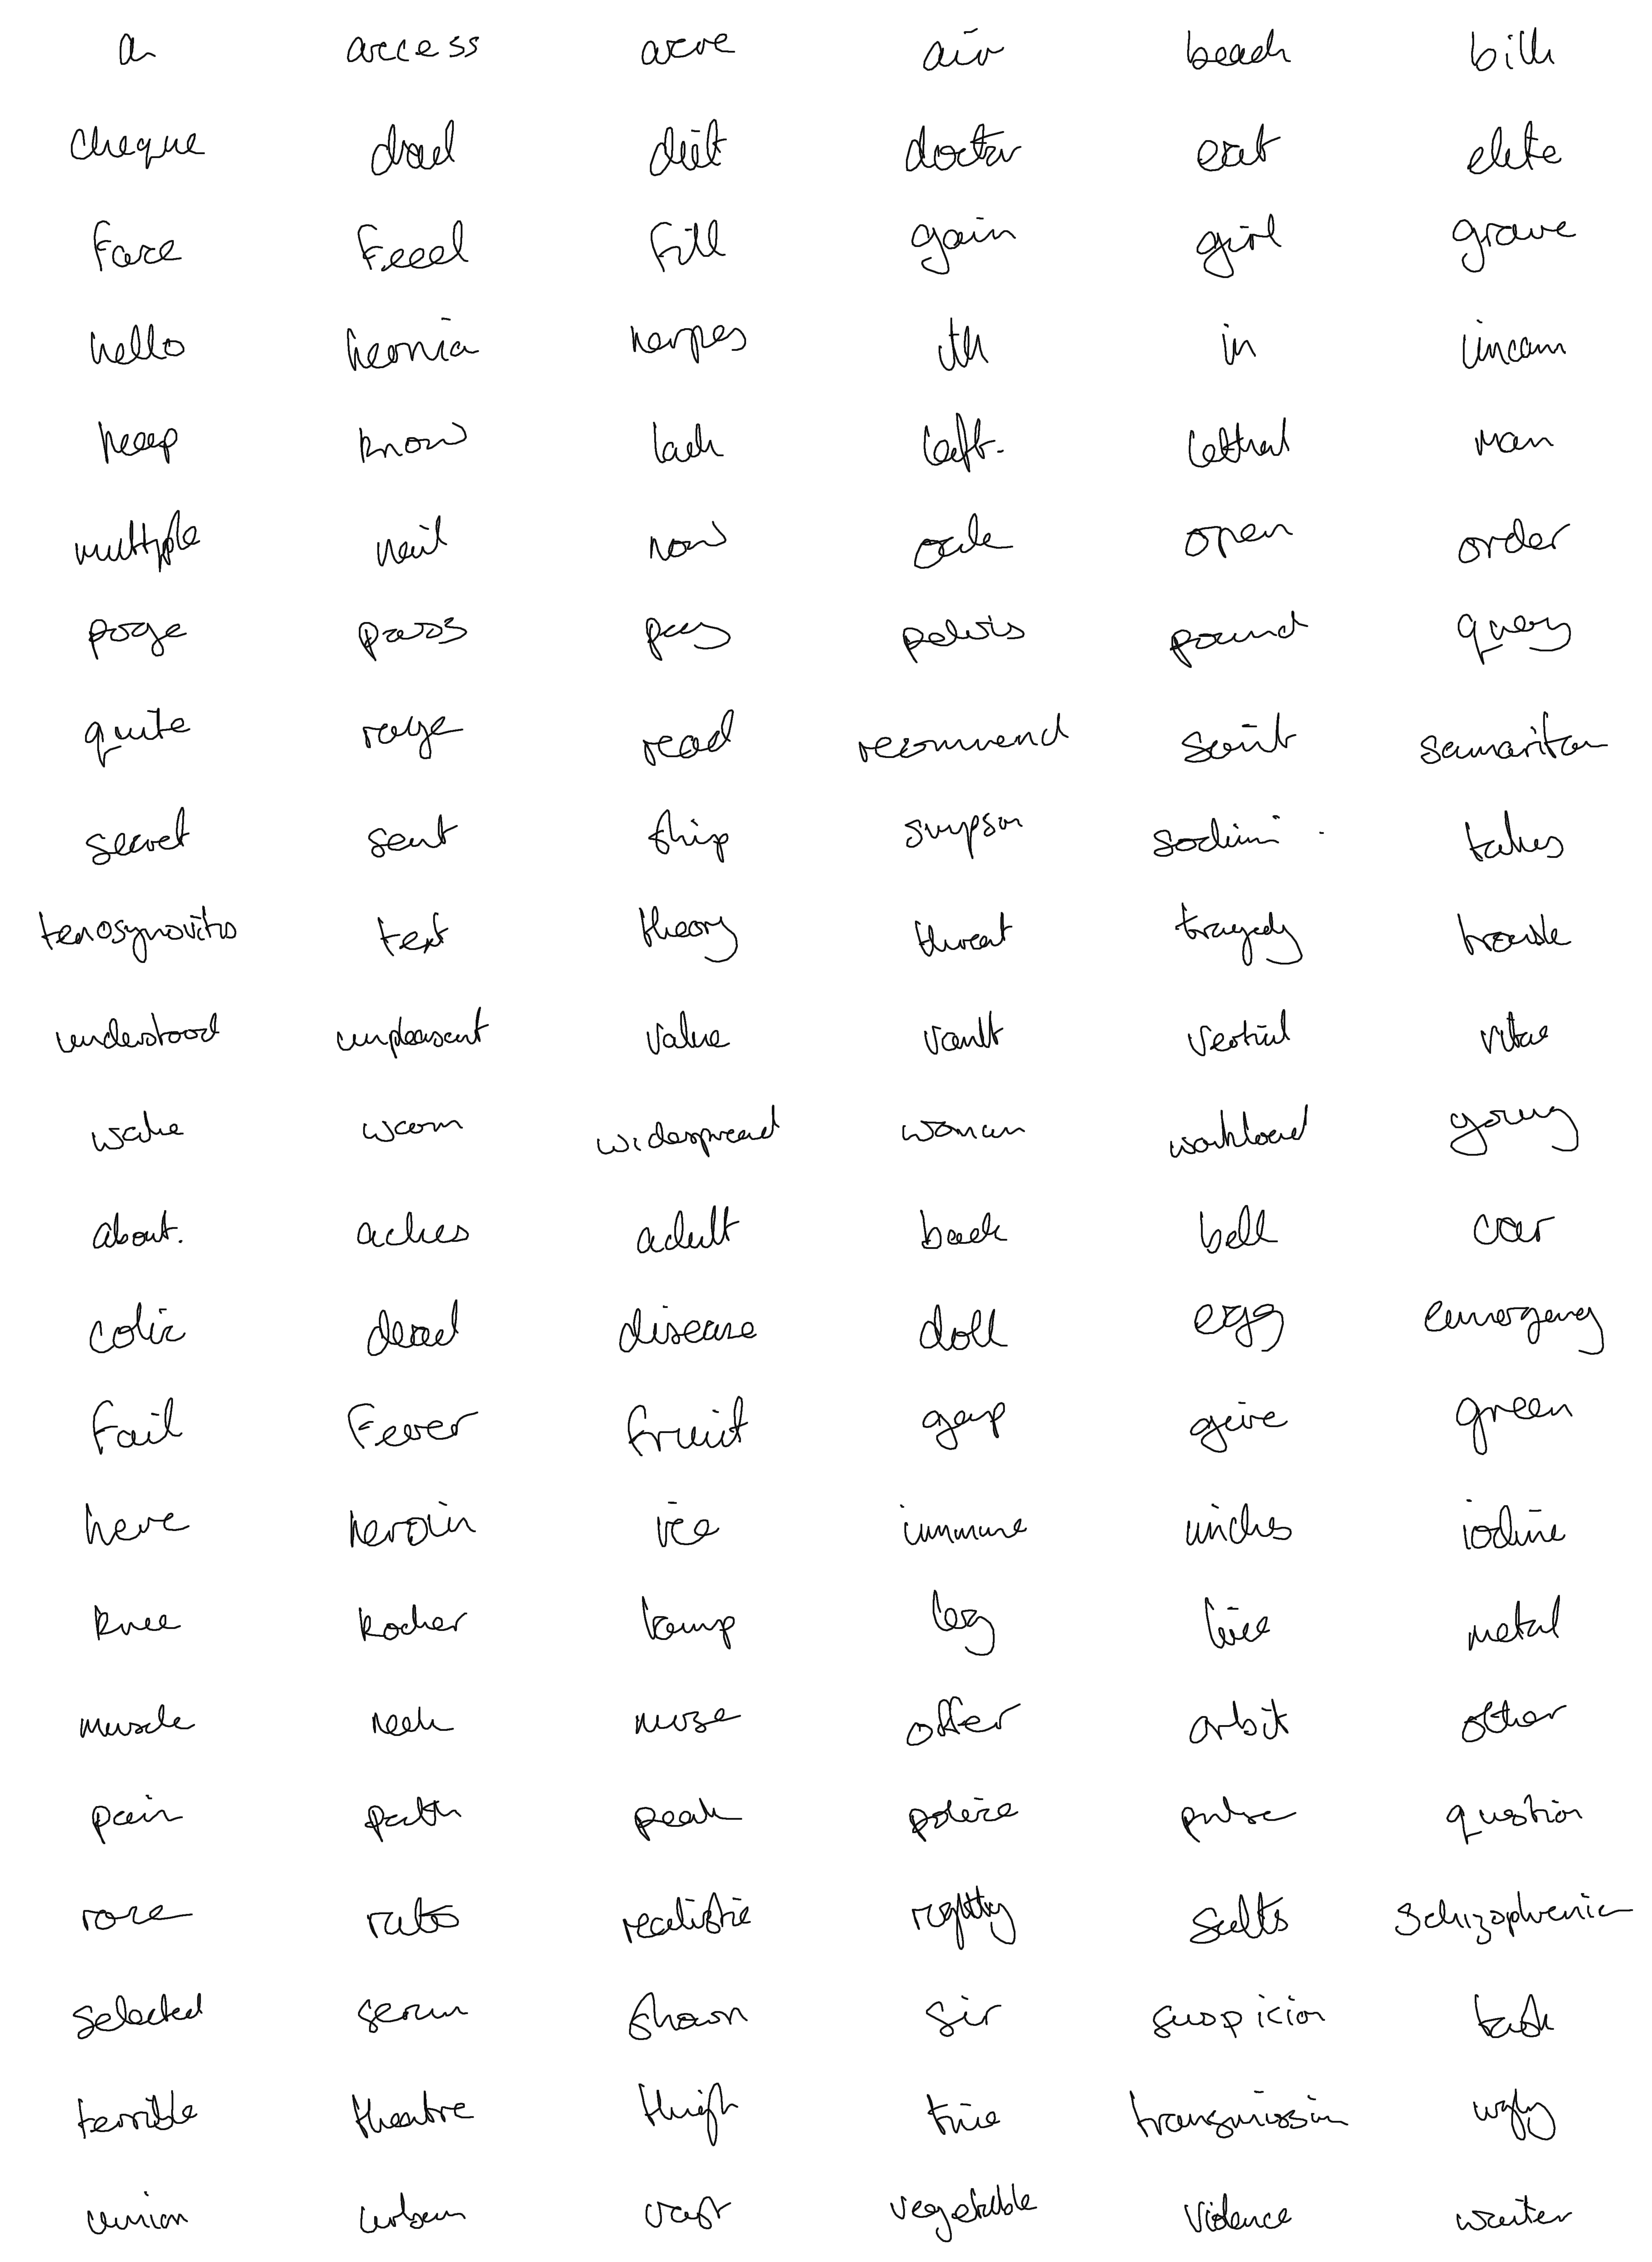 a access acre air beach bill
cheque dead diet doctor eat elite
face feel fill gain girl grave
hello hernia herpes in
keep know lack left. lethal man
multiple nail now open order
page pass pay pelvis pound query
quite rage read recommend saint samaritan
secret sent ship simpson sodium takes
tenosynovitis text theory threat tragedy trouble
understood unpleasant value vault vertical vitae
wake warm widespread woman workload young
about. aches adult back bell car
colic dead disease doll egg emergency
fail fever fruit gap give green
here heroin ice immune inches iodine
knee kocher lamp leg lice metal
muscle neck nurse offer orbit other
pain path peak police pulse question
race rats realistic rightly salts schizophrenia
selected serum shown sir suspicion task
terrible theatre thigh time transmission ugly
union urban vast vegetable violence waiter